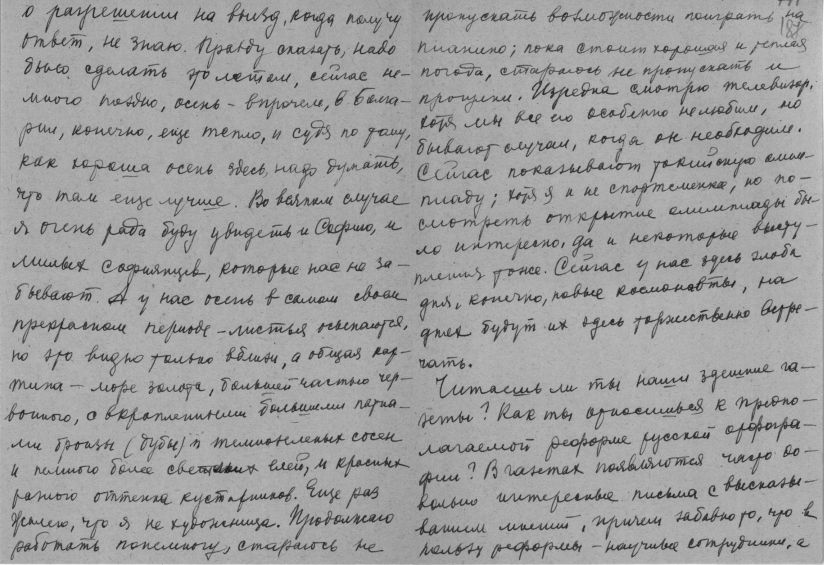 о разрешении на выезд, когда получу
ответ, не знаю. Правду сказать, надо
было сделать это летом, сейчас не-
много поздно, осень – впрочем, в Болга-
рии, конечно, еще тепло, и судя по тому,
как хороша осень здесь, надо думать,
что там еще лучше. Во всяком случае
я очень рада буду увидеть и Софию, и
милых софиянцев, которые нас не за-
бывают. А у нас осень в самом своем
прекрасном периоде – листья осыпаются,
но это видно только вблизи, а общая кар-
тина – море золота, большей частью чер-
вонного, с вкрапленными большими пятна-
ми бронзы (дубы) и темнозеленых сосен
и немного более светлых елей, и красных
разного оттенка кустарников. Еще раз
жалею, что я не художница. Продолжаю
работать понемногу, стараюсь не
пропускать возможности поиграть на
пианино; пока стоит хорошая и теплая
погода, стараюсь не пропускать и
прогулки. Изредка смотрю телевизор;
хотя мы все его особенно не любим, но
бывают случаи, когда он необходим.
Сейчас показывают токийскую олим-
пиаду; хотя я и не спортсменка, но по-
смотреть открытие олимпиады бы-
ло интересно, да и некоторые высту-
пления тоже. Сейчас у нас здесь злоба
дня, конечно, новые космонавты, на
днях будут их здесь торжественно встре-
чать.
Читаешь ли ты наши здешние га-
зеты? Как ты относишься к предпо-
лагаемой реформе русской орфогра-
фии? В газетах появляются часто до-
вольно интересные письма с высказы-
ванием мнений, причем забавно то, что в
пользу реформы – научные сотрудники, а